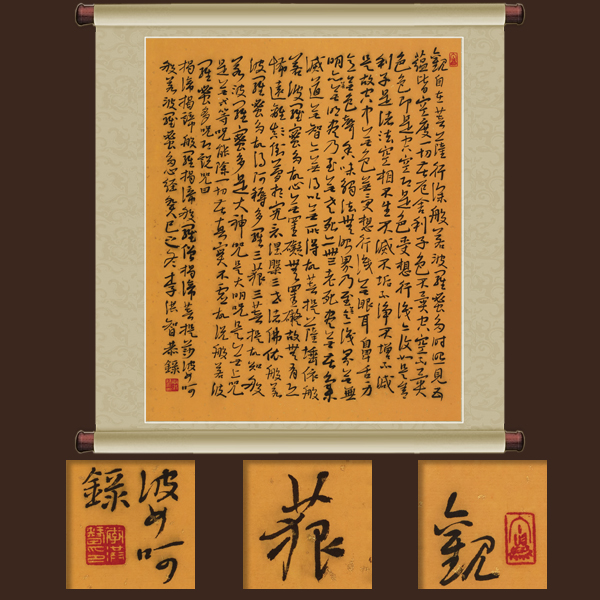 觀自在菩薩行深般若波羅蜜多時照見五
蘊皆空度一切苦厄舍利子色不異空空不異
色色即是空空即是色受想行識亦復如是舍
利子是諸法空相不生不滅不垢不淨不增不減
是故空中無色無受想行識無眼耳鼻舌身
意無色聲香味觸法無眼界乃至無意識界無無
明亦無無明盡乃至無老死亦無老死盡無苦集
滅道無智亦無得以無所得故菩提薩埵依般
若波羅蜜多故心無罣礙無罣礙故無有恐
怖遠離顛倒夢想究竟涅槃三世諸佛依般若
波羅蜜多故得阿耨多羅三藐三菩提故知般
若波羅蜜多是大神咒是大明咒是無上咒
是無等等咒能除一切苦真實不虛故說般若波
羅蜜多咒即說咒曰
揭諦揭諦般羅揭諦般羅僧揭諦菩提莎婆呵
般若波羅蜜多心經癸巳之冬李洪智恭錄
婆呵
錄
藐
觀